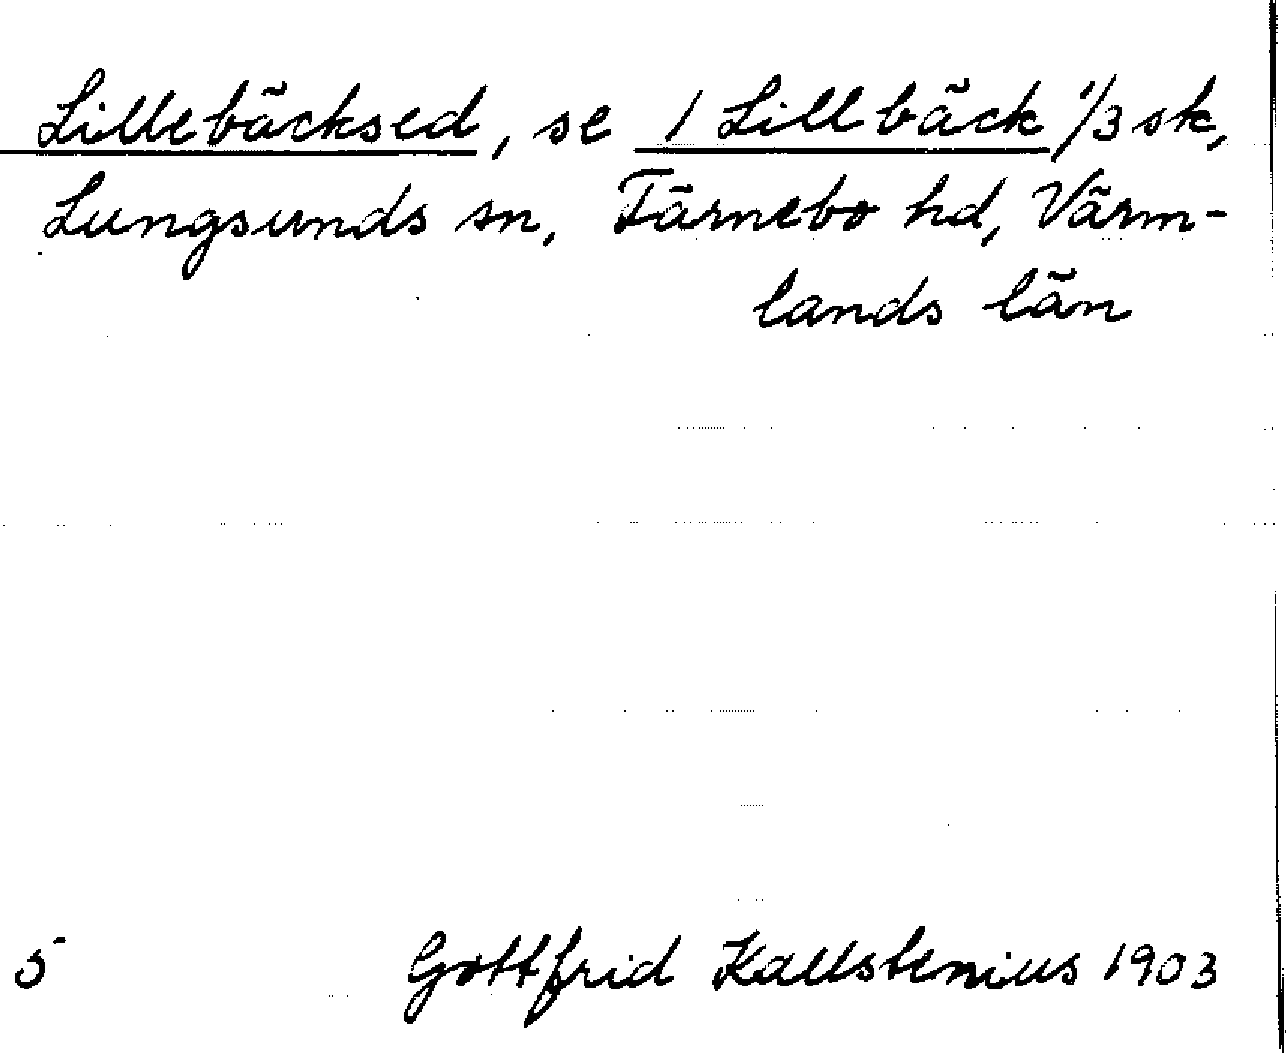 Lillebäcksed, se 1 Lillbäck 1/3 sk,
Lungsunds sn, Färnebo hd, Värm-
lands län
5 Gottfrid Kallstenius 1903